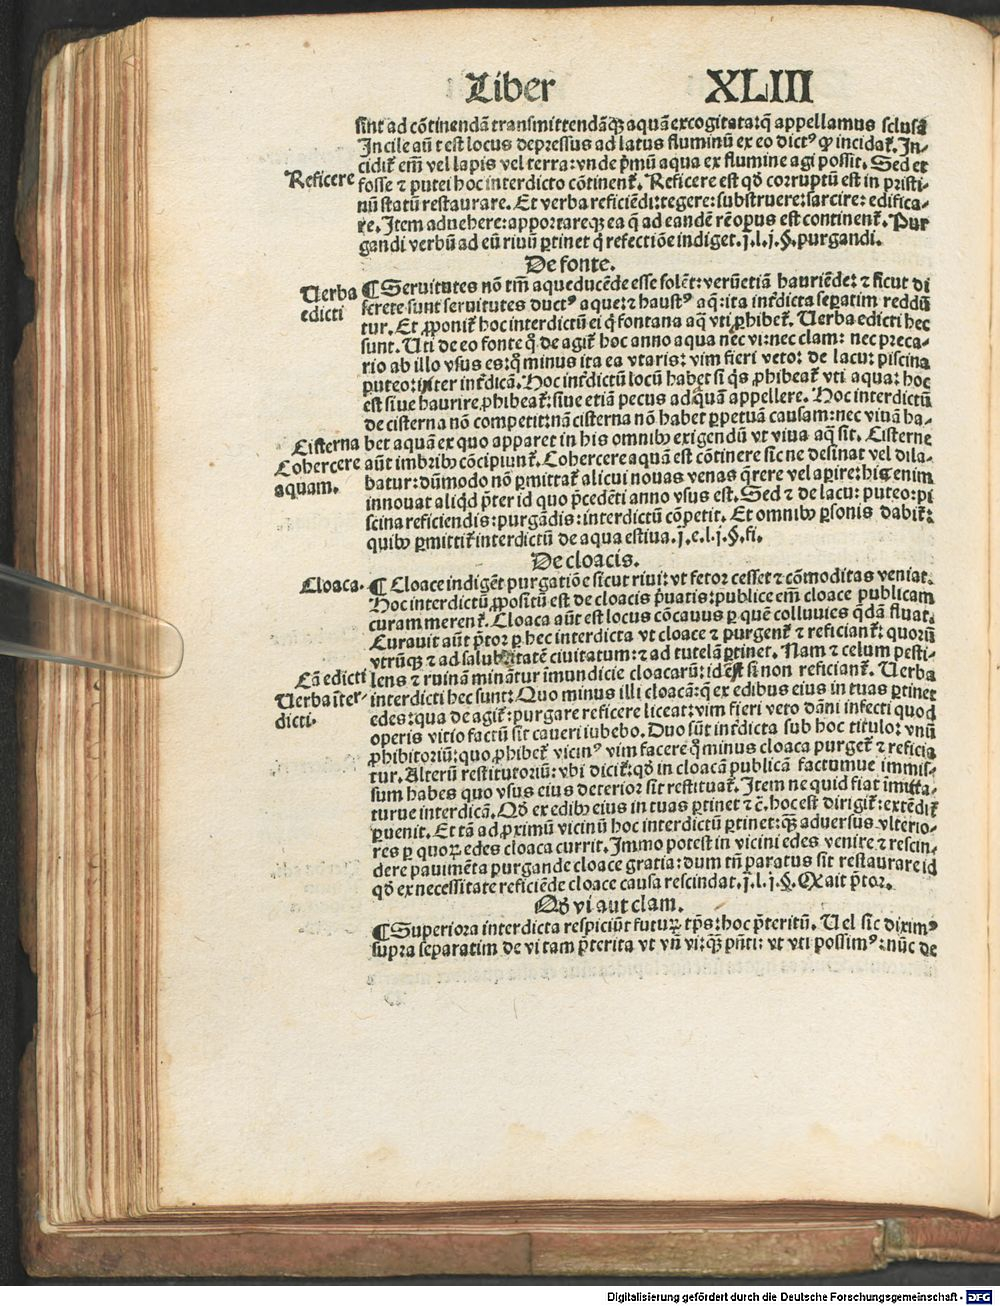 Liber XLIII
sint ad cõtinendã transmittendãqꝫ aquã excogitata: q̃ appellamus sclusã
Incile aũt est locus depressus ad latus fluminũ ex eo dictꝰ ꝙ incidat̃. In-
cidit̃ em̃ vel lapis vel terra: vnde p̃mũ aqua ex flumine agi possit. Sed et
Reficere
fosse ⁊ putei hoc interdicto cõtinent̃. Reficere est qđ corruptũ est in pristi-
nũ statũ restaurare. Et verba reficiẽdi: tegere: substruere: sarcire: edifica-
re. Item aduehere: apportareqꝫ ea q̃ ad eandẽ rẽ opus est continent̃. Pur
gandi verbũ ad eũ riuũ ꝑtinet q̃ refectiõe indiget. j. l. j. §. purgandi.
De fonte.
Verba
edicti
¶ Seruitutes nõ tm̃ aque ducẽde esse solẽt: verũetiã hauriẽde: ⁊ sicut di
screte sunt seruitutes ductꝰ aque: ⁊ haustꝰ aq̃: ita int̃dicta seꝑatim reddũ
tur. Et ꝓponit̃ hoc interdictũ ei q̃ fontana aq̃ vti ꝓhibet̃. Verba edicti hec
sunt. Uti de eo fonte q̃ de agit̃ hoc anno aqua nec vi: nec clam: nec preca-
rio ab illo vsus es: q̃ minus ita ea vtaris: vim fieri veto: de lacu: piscina
puteo: inter int̃dicã. Hoc int̃dictũ locũ habet si q̃s ꝓhibeat̃ vti aqua: hoc
est siue haurire ꝓhibeat̃: siue etiã pecus ad aquam appellere. Hoc interdictũ
de cisterna nõ competit: nã cisterna nõ habet ꝑpetuã causam: nec viuã ha-
Cisterna
bet aquã ex quo apparet in his omnibꝫ exigendũ vt viua aq̃ sit. Cisterne
Cohercere
aquam.
aũt imbribꝫ cõcipiunt̃. Cohercere aquã est cõtinere sic ne desinat vel dila-
batur: dũmodo nõ ꝑmittat̃ alicui nouas venas q̃rere vel aꝑire: his enim
innouat aliqđ p̃ter id quo p̃cedẽti anno vsus est. Sed ⁊ de lacu: puteo: pi
scina reficiendis: purgãdis: interdictũ cõpetit. Et omnibꝫ ꝑsonis dabit̃:
quibꝫ ꝑmittit̃ interdictũ de aqua estiua. j. e. l. j. §. fi.
De cloacis.
Cloaca.
¶ Cloace indigẽt purgatiõe sicut riui: vt fetor cesset ⁊ cõmoditas veniat.
Hoc interdictũ ꝓpositũ est de cloacis p̃uatis: publice em̃ cloace publicam
curam merent̃. Cloaca aũt est locus cõcauus ꝑ quẽ colluuies q̃dã fluat.
Curauit aũt p̃tor ꝑ hec interdicta vt cloace ⁊ purgent̃ ⁊ reficiant̃: quorũ
vtrũqꝫ ⁊ ad salubritatẽ ciuitatum: ⁊ ad tutelã ꝑtinet. Nam ⁊ celum pesti-
Cã edicti
lens ⁊ ruinã minãtur ĩmundicie cloacarũ: id est si non reficiant̃. Verba
Verba ĩter-
dicti.
interdicti hec sunt: Quo minus illi cloacã: q̃ ex edibus eius in tuas ꝑtinet
edes: qua de agit̃: purgare reficere liceat: vim fieri veto dãni infecti quod
operis vitio factũ sit caueri iubebo. Duo sũt int̃dicta sub hoc titulo: vnũ
ꝓhibitoriũ: quo ꝓhibet̃ vicinꝰ vim facere q̃ minus cloaca purget̃ ⁊ reficia
tur. Alterũ restitutoriũ: vbi dicit̃: qđ in cloacã publicã factumue immis-
sum habes quo vsus eius deterior sit restituat̃. Item ne quid fiat ĩmitta-
turue interdicã. Qđ ex edibꝫ eius in tuas ꝑtinet ⁊ c̃. hoc est dirigit̃: extẽdit̃
ꝑuenit. Et tã ad ꝓximũ vicinũ hoc interdictũ ꝑtinet: qꝫ̃ aduersus vlterio-
res ꝑ quoꝝ edes cloaca currit. Immo potest in vicini edes venire ⁊ rescin-
dere pauimẽta purgande cloace gratia: dum tñ paratus sit restaurare id
qđ ex necessitate reficiẽde cloace causa rescindat. j. l. j. §. Qđ ait p̃tor.
Qđ vi aut clam.
¶ Superiora interdicta respiciũt futuꝝ tp̃s: hoc p̃teritũ. Vel sic diximꝰ
supra separatim de vi tam p̃terita vt vñ vi: qꝫ̃ p̃nti: vt vti possimꝰ: nũc de
Digitalisierung gefördert durch die Deutsche Forschungsgemeinschaft - DFG